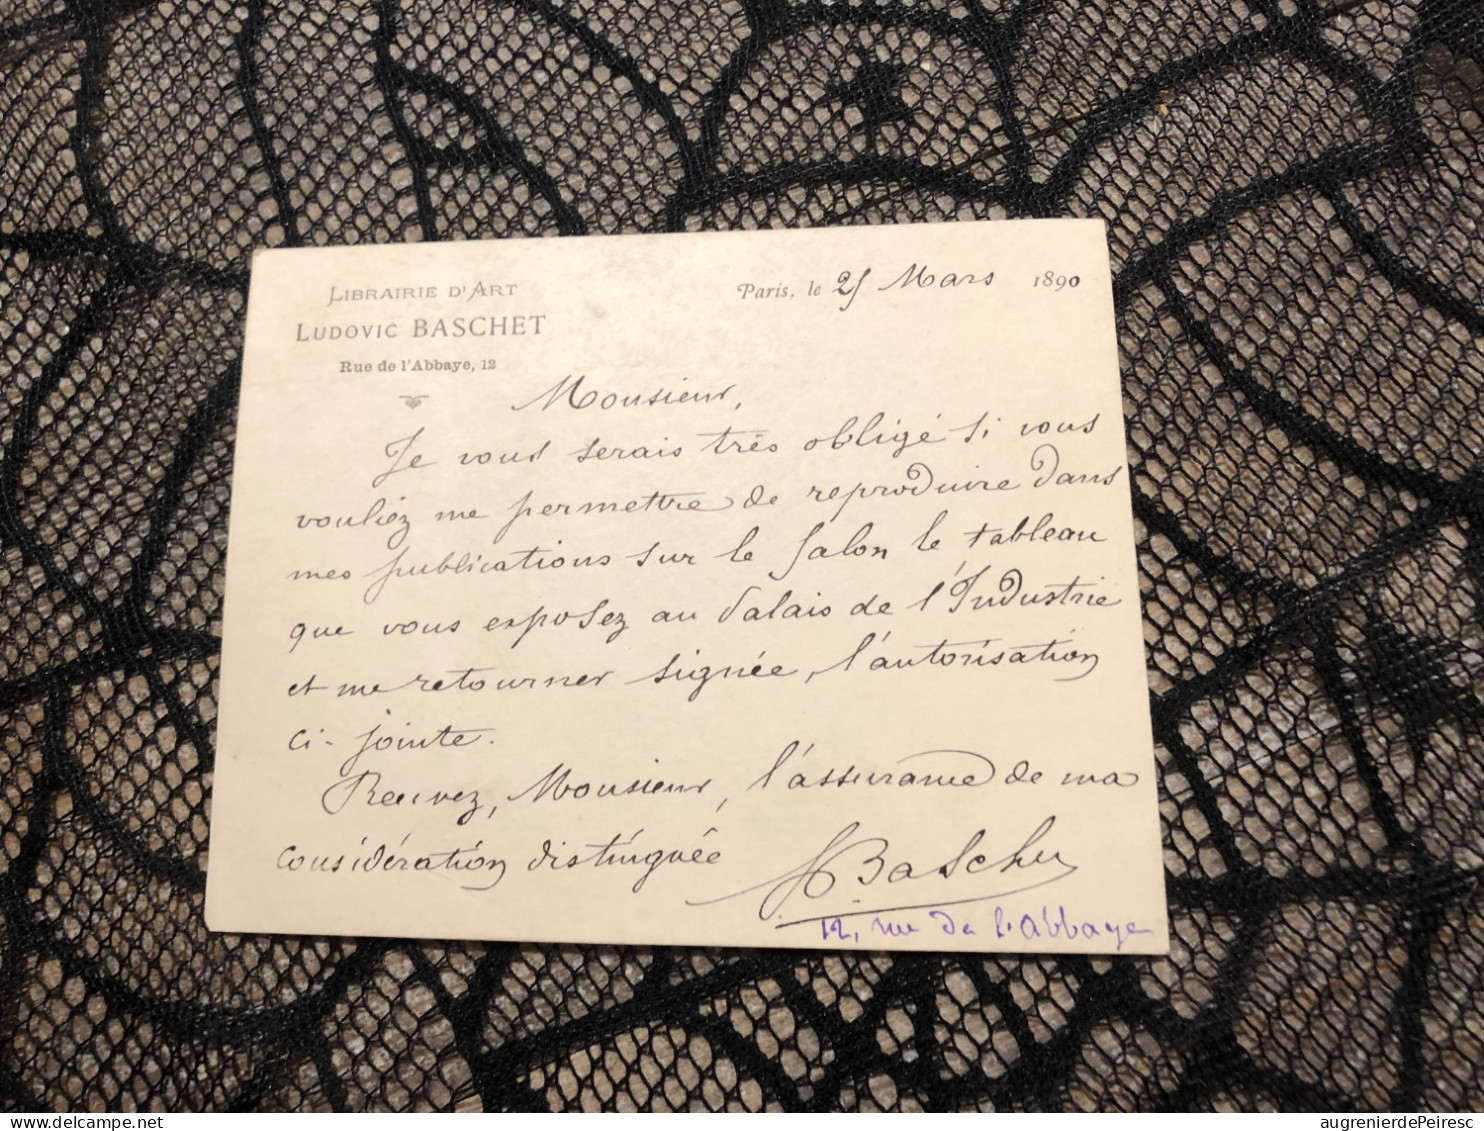 LIBRAIRIE D'ART
LUDOVIC BASCHET
Rue de l'Abbaye, 12
Paris, le 25 Mars 1890
Monsieur,
Je vous serais très obligé si vous
vouliez me permettre de reproduire dans
mes publications sur le Salon le tableau
que vous exposez au Palais de l'Industrie
et me retourner signée, l'autorisation
ci-jointe.
Recevez, Monsieur, l'assurance de ma
considération distinguée
LBaschet
12, rue de l'Abbaye
www.delcampe.net
augrenierdePeiresc